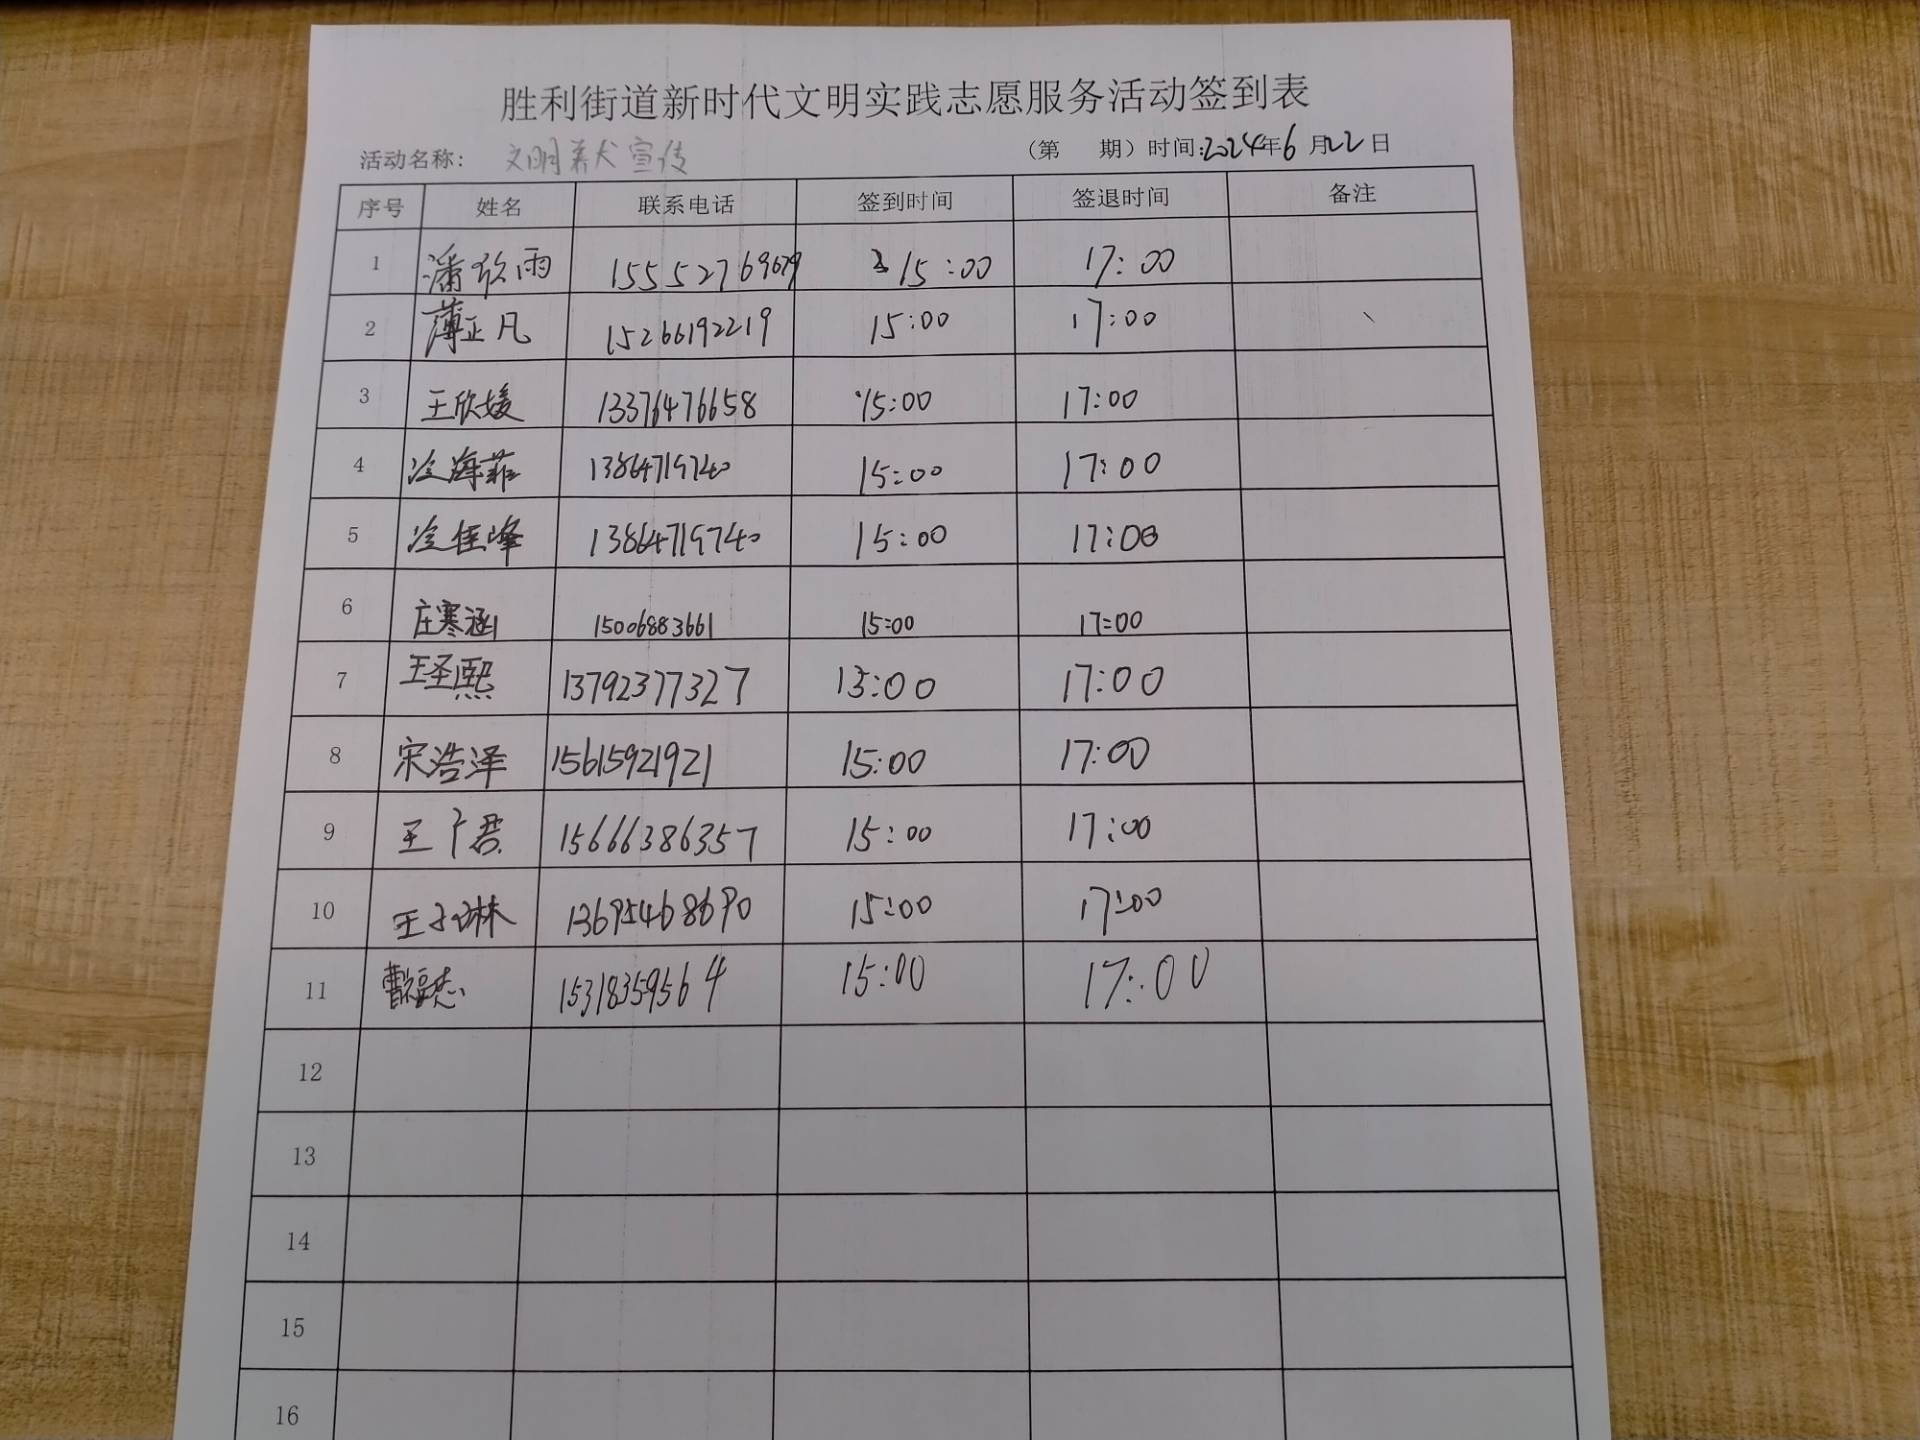 胜利街道新时代文明实践志愿服务活动签到表
活动名称： 文明养犬宣传 （第 期）时间:2024年6月22日
序号 姓名 联系电话 签到时间 签退时间 备注
1 潘欣雨 15552769679 15:00 17:00
2 薄正凡 15266192219 15:00 17:00
3 王欣媛 13376476658 15:00 17:00
4 冷海菲 13864719740 15:00 17:00
5 冷佳峰 13864719740 15:00 17:00
6 庄寒涵 15006883661 15:00 17:00
7 王圣熙 13792377327 15:00 17:00
8 宋浩泽 15615921921 15:00 17:00
9 王 君 15666386357 15:00 17:00
10 王子琳 13695468690 15:00 17:00
11 曹 15318359564 15:00 17:00
12
13
14
15
16